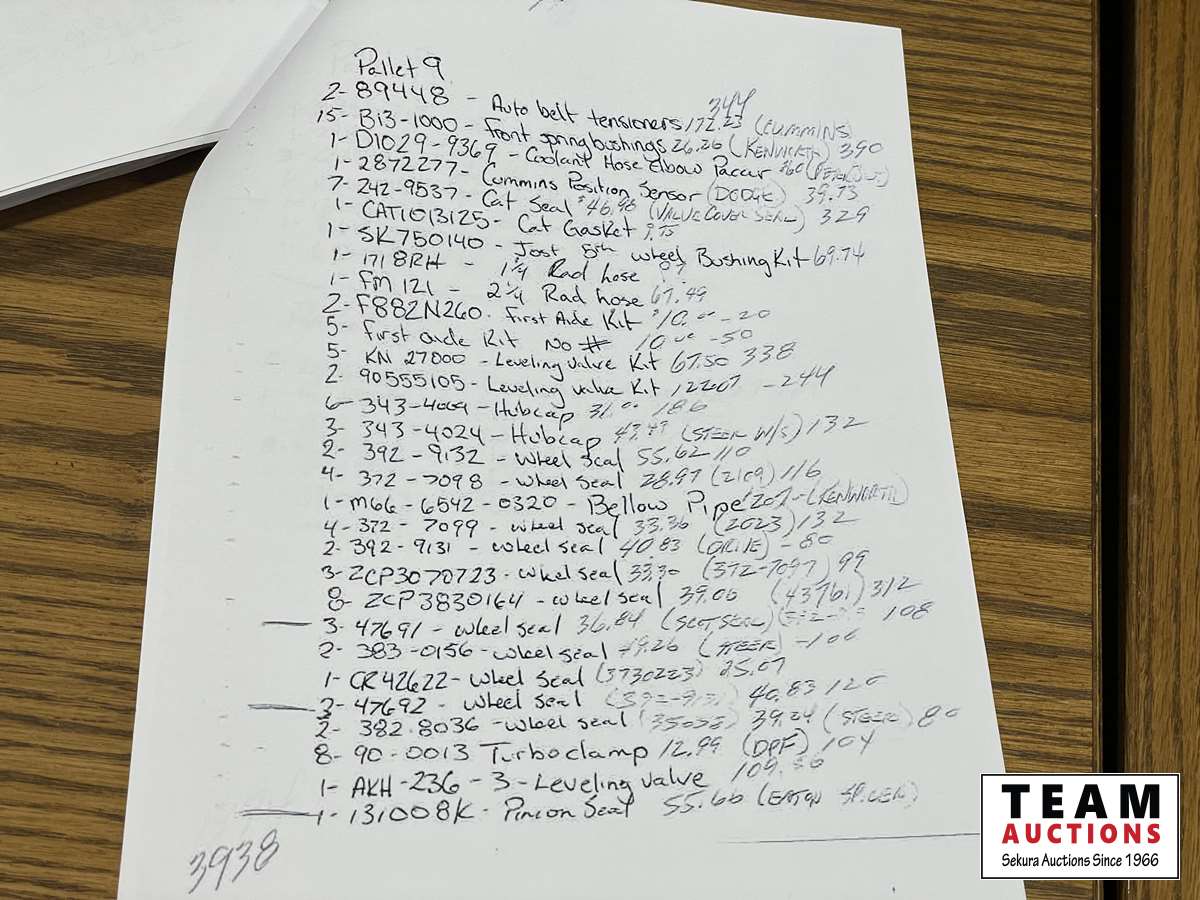 Pallet 9
2- 89448 - Auto belt tensioners 172.23 (CUMMINS) 344
15- B13-1000 - front spring bushings 26.26 (KENWORTH) 390
1- D1029-9369 - Coolant Hose Elbow Paccar $60
1- 2872277 - Cummins Position Sensor (DODGE) 39.73
7- 242-9537 - Cat Seal $46.98 (VALVE COVER SEAL) 329
1- CAT1013125 - Cat Gasket 9.75
1- SK750140 - Jost 5th wheel Bushing Kit 69.74
1- 1718RH - 1 1/4 Rad hose ??
1- FM 121 - 2 1/4 Rad hose 67.49
2- F882N260 - first Aide Kit $10.00 -20
5- first aide Kit No # 10.00 -50
5- KN 27000 - Leveling valve Kit 67.50 338
2- 90555105 - Leveling valve Kit 122.07 -244
6- 343-4009 - Hubcap 31.00 186
3- 343-4024 - Hubcap (STEER W/S) 132
2- 392-9132 - wheel seal 55.62 110
4- 372-7098 - wheel Seal 28.97 116
1- M66-6542-0320 - Bellow Pipe $207- (KENWORTH)
4- 372-7099 - wheel seal 33.36 (2023) 132
2- 392-9131 - wheel seal 40.83 (DRIVE) -80
3- ZCP3070723 - wheel seal 33.30 (372-7097) 99
8- ZCP3830164 - wheel seal 39.00 312
3- 47691 - wheel seal 36.84 (SCOT SEAL) 108
2- 383-0156 - wheel seal (STEER) -100
1- CR42622 - wheel Seal (3730223) 25.07
3- 47692 - wheel seal 40.83 120
2- 382.8036 - wheel seal 39.24 (STEER) 80
8- 90-0013 Turbo clamp 12.99 (DPF) 104
1- AKH-236-3 - Leveling valve 109.50
1- 131008K - Pinion Seal 55.66 (EATON SPICER)
3938
TEAM
AUCTIONS
Sekura Auctions Since 1966